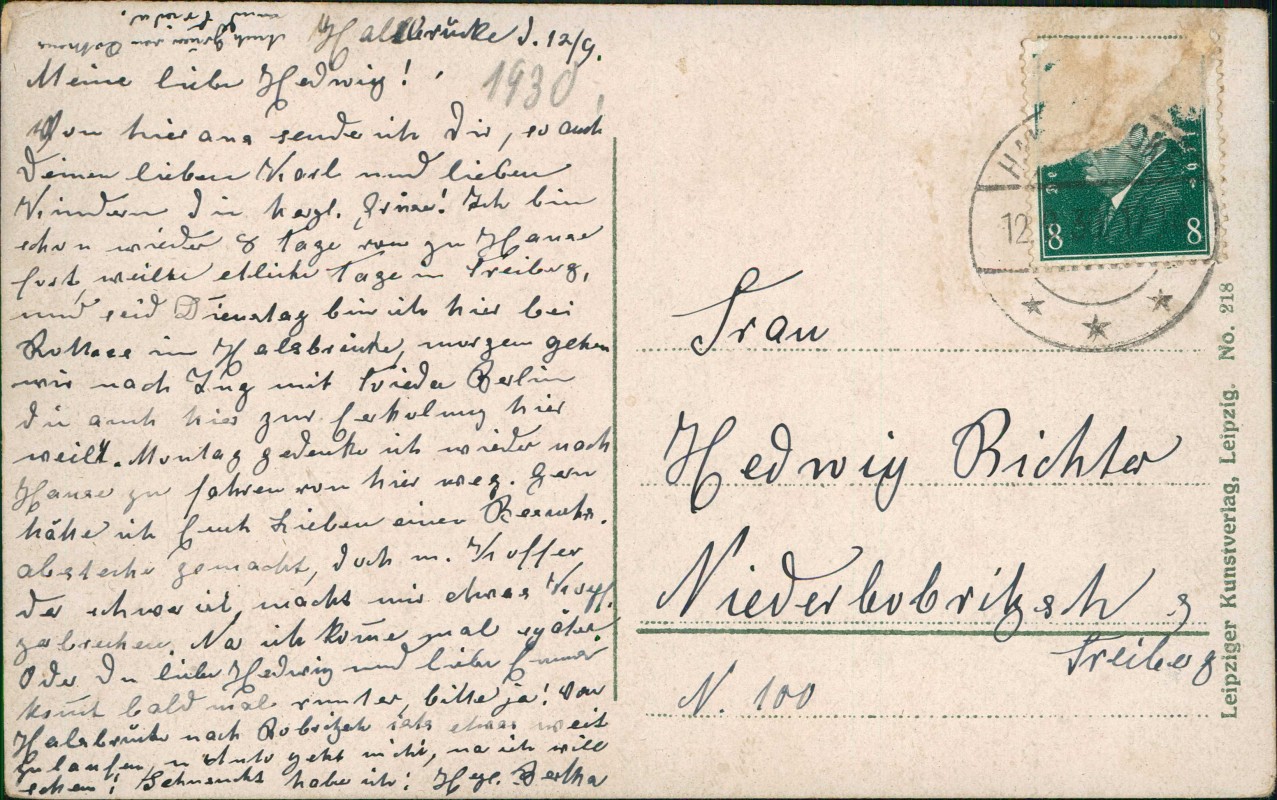 Halsbrücke d. 12/9.
1930
Meine liebe Hedwig!
Von hier aus sende ich Dir, so auch
Deinen lieben Karl und lieben
Kindern die herzl. Grüsse! Ich bin
schon wieder 8 Tage von zu Hause
fort, weilte etliche Tage in Freiberg,
und seid Dienstag bin ich hier bei
in Halsbrücke, morgen gehen
wir nach Zug mit Frieda Berlin
die auch hier zur Erholung hier
weilt. Montag gedenke ich wieder nach
Hause zu fahren von hier weg. Gern
hätte ich Euch Lieben einen Besuchs-
abstecher gemacht, doch m. Koffer
der schwer ist, macht mir etwas Kopf-
zebrechen. Na ich kome mal später.
Oder Du liebe Hedwig und liebe
komt bald mal runter, bitte ja! Von
Halsbrücke nach Bobritzsch ists etwas weit
zulaufen, u Auto geht nicht, na ich will
sehen! Sehnsucht habe ich! Hzl. Bertha
Auch Grüsse von
und Frieda.
8 8
12
Frau
Hedwig Richter
Niederbobritzsch
Freiberg
N. 100
Leipziger Kunstverlag, Leipzig. No. 218